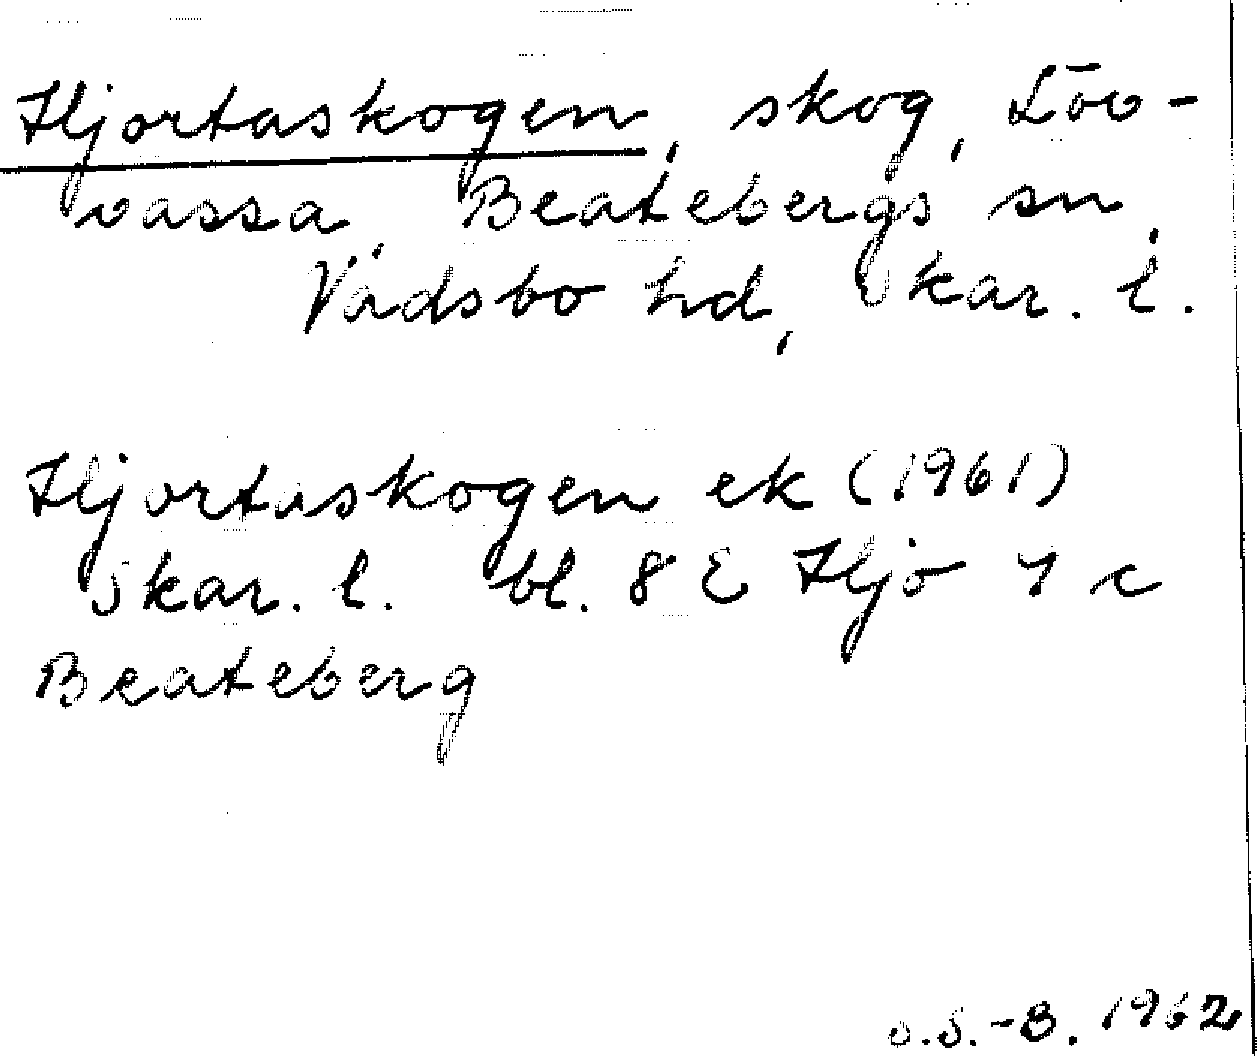 Hjortaskogen, skog, Löv-
vassa, Beatebergs sn,
Vadsbo hd, Skar. l.
Hjortaskogen ek (1961)
Skar. l. bl. 8 E Hjo 7 c
Beateberg
S.-B. 1962